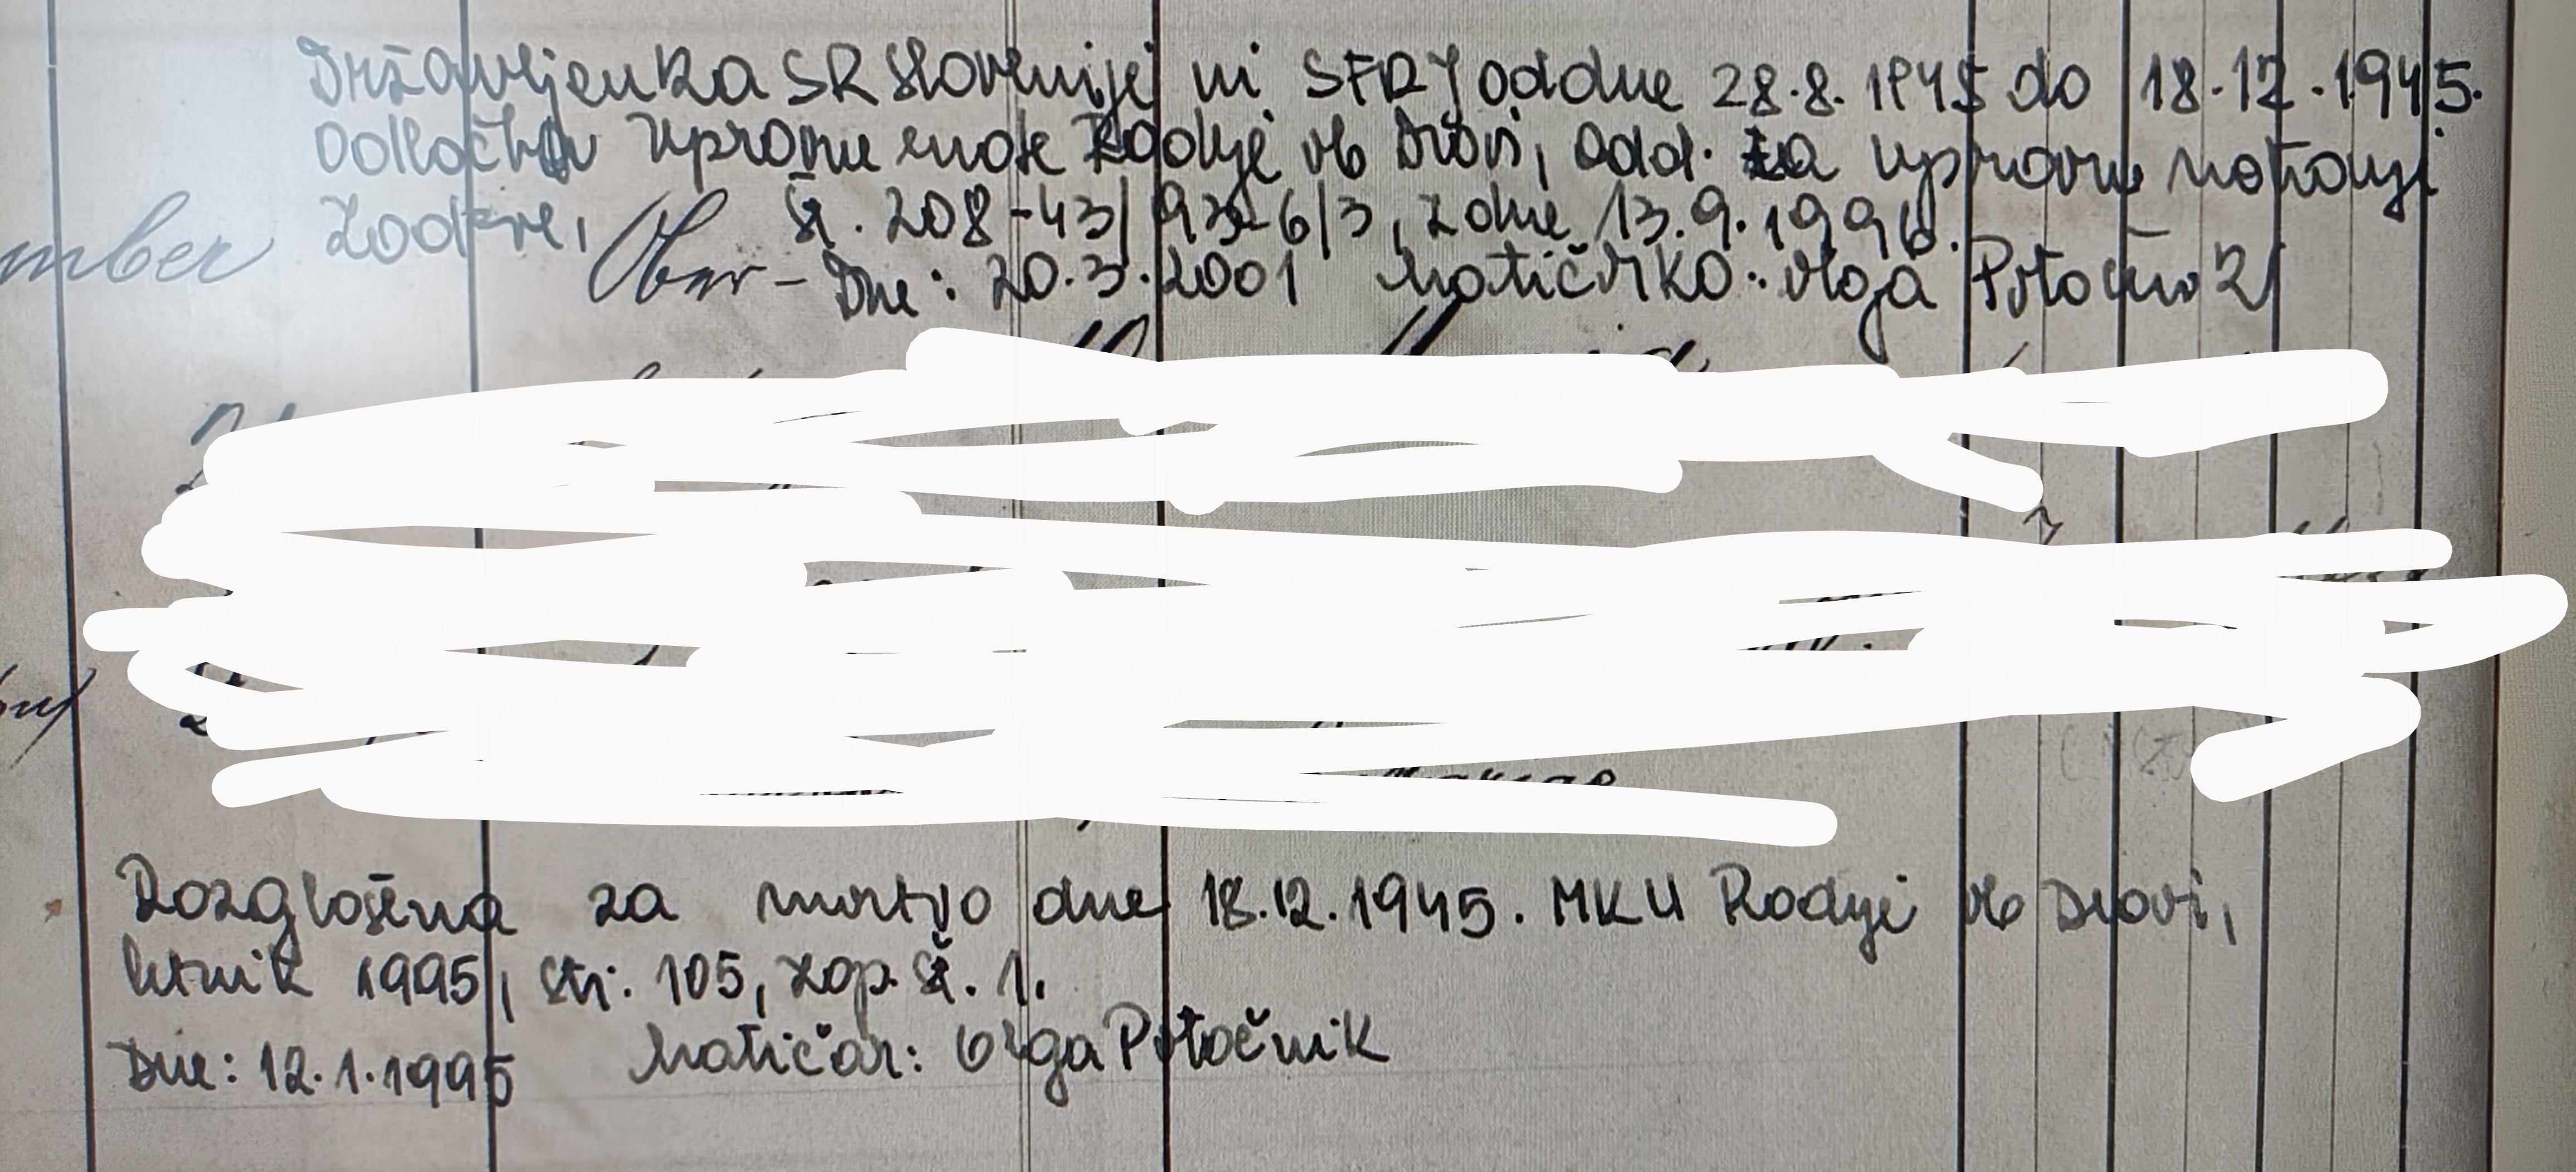 Državljenka SR Slovenije in SFRJ od dne 28.8.1945 do 18.12.1945.
Odločba Upravne enote Radlje ob Dravi, odd. za upravne notranje
mber zadeve, Ober- št. 208-43/93-6/3, z dne 13.9.1996.
Dne: 20.3.2001 Matičarka: Olga Potočnik
Razglašena za mrtvo dne 18.12.1945. MKU Radlje ob Dravi,
letnik 1995, str. 105, zap. št. 1.
Dne: 12.1.1995 Matičar: Olga Potočnik